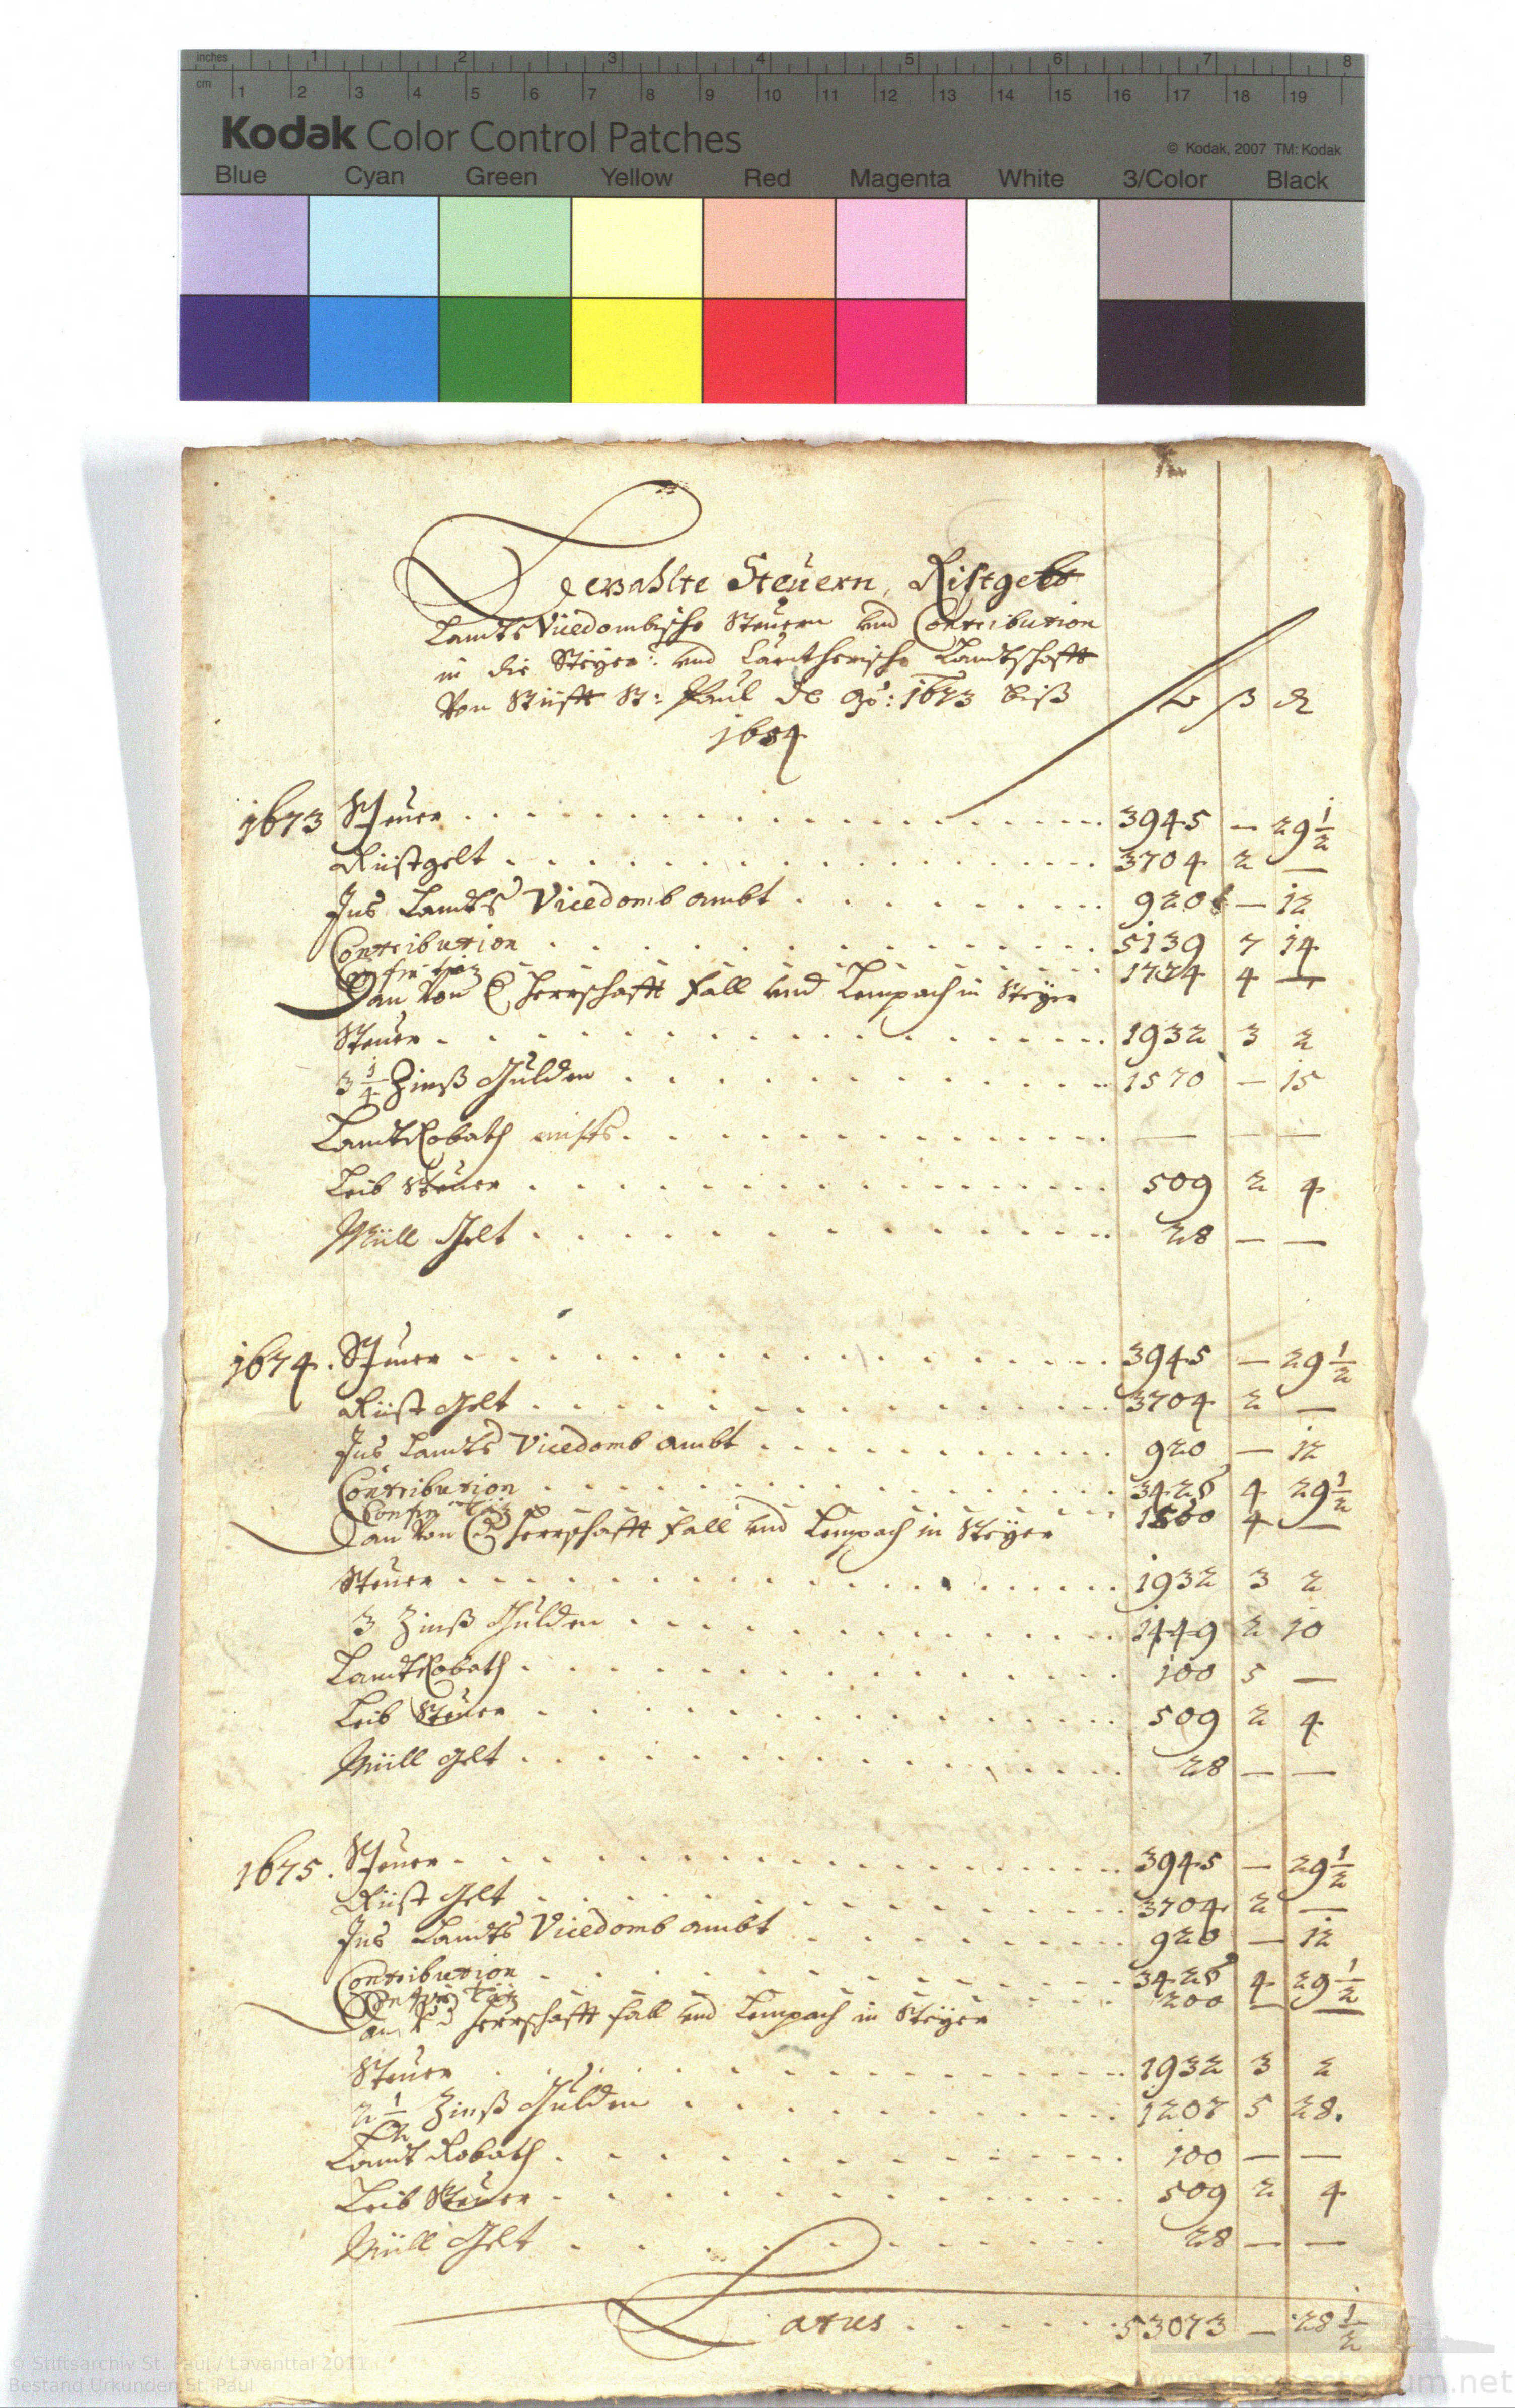 inches 1 2 3 4 5 6 7 8
cm 1 2 3 4 5 6 7 8 9 10 11 12 13 14 15 16 17 18 19
Kodak Color Control Patches
© Kodak, 2007 TM: Kodak
Blue Cyan Green Yellow Red Magenta White 3/Color Black
Bezahlte Steüern, Ristgelt
Landts Vicedombische Steuern vnd Contribution
in die Steyer: vnd Cärntherische Landtschafft
Von Stüfft St: Paul de Aõ: 1673 biß
1684
f ß ₰
1673 Steuer 3945 — 29 1/2
Rüstgelt 3704 2 —
Ins Landts Vicedomb ambt 920 — 12
Contribution 5139 7 14
1724 4 —
Dan von Herrschafft Fall vnd Lempach in Steyer
Steuer 1932 3 2
3 1/4 Zinß Gulden 1570 — 15
Landt Robath nichts — — —
Leib Steuer 509 2 4
Müll Gelt 28 — —
1674. Steuer 3945 — 29 1/2
Rüst Gelt 3704 2 —
Ins Landts Vicedomb ambt 920 — 12
Contribution 3426 4 29 1/2
1560 4 —
Dan von Herrschafft Fall vnd Lempach in Steyer
Steuer 1932 3 2
3 Zinß Gulden 1449 2 10
Landt Robath 100 5 —
Leib Steuer 509 2 4
Müll Gelt 28 — —
1675. Steuer 3945 — 29 1/2
Rüst Gelt 3704 2 —
Ins Landts Vicedomb ambt 920 — 12
Contribution 3426 4 29 1/2
200 — —
Dan Herrschafft Fall vnd Lempach in Steyer
Steuer 1932 3 2
2 1/2 Zinß Gulden 1207 5 28.
Landt Robath 100 — —
Leib Steuer 509 2 4
Müll Gelt 28 — —
Latus 53073 — 28 1/2
© Stiftsarchiv St. Paul / Lavanttal 2011
Bestand Urkunden St. Paul